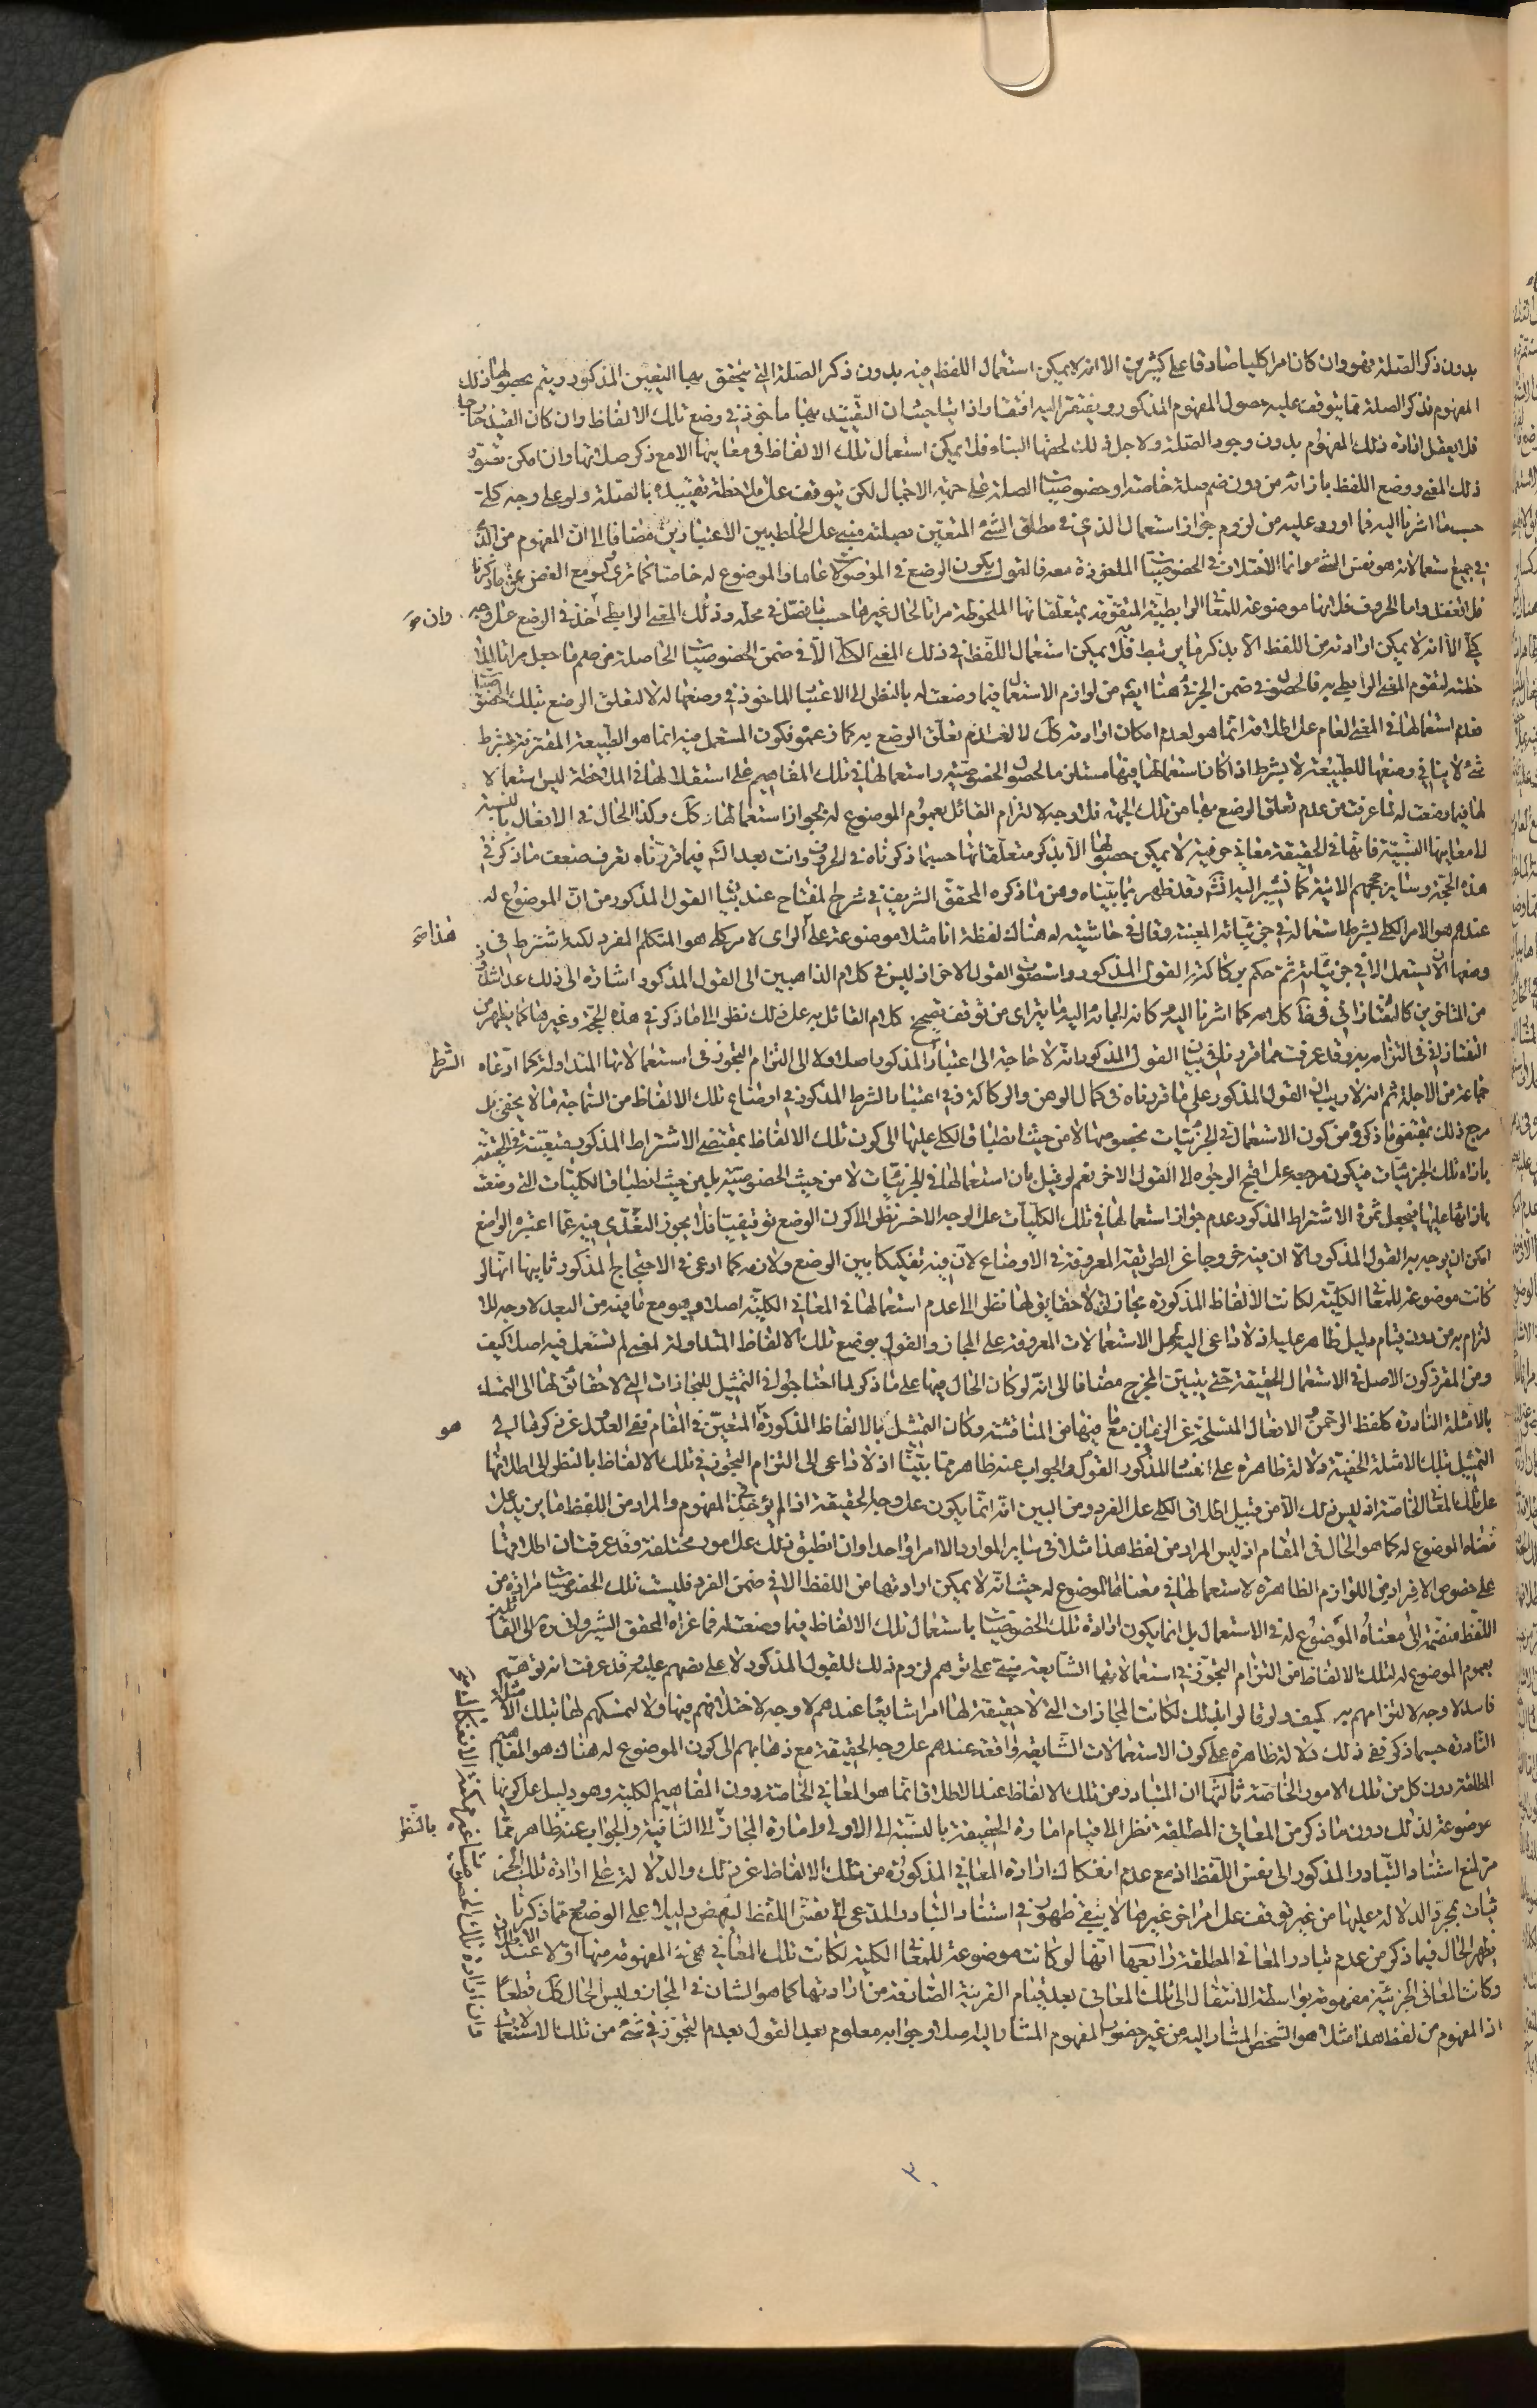 بدون ذكر الصلة فهو وان كان امرا كليا صادقا على كثيرين الا انه لا يمكن استعمال اللفظ فيه بدون ذكر الصلة التي يتحقق بها التعيين المذكور ويتم بحصولها ذلك
المفهوم فذكر الصلة مما يتوقف عليه حصول المفهوم المذكور ويفتقر اليه افتقارا ذاتيا حيث ان التقييد بها ماخوذ في وضع تلك الالفاظ وان كان القيد خارجا
فلا يعقل افادة ذلك المفهوم بدون وجود الصلة ولاجل ذلك لحقها البناء فلا يمكن استعمال تلك الالفاظ في معانيها الا مع ذكر صلاتها وان امكن تصور
ذلك المعنى ووضع اللفظ بازائه من دون ضم صلة خاصة او خصوصيات الصلة على جهة الاجمال لكن يتوقف على ملاحظة تقييده بالصلة ولو على وجه كلي
حسب ما اشرنا اليه فما اورد عليه من لزوم جواز استعمال الذي في مطلق الشئ المتعين بصلته مبني على الخلط بين الاعتبارين مضافا الى ان المفهوم من الذي
في جميع استعمالاته هو نفس الشئ وانما الاختلاف في الخصوصيات الملحوظة معه فالقول بكون الوضع في الموصولات عاما والموضوع له خاصا كما ترى ولو مع الغض عن ما ذكرنا
فلا تغفل واما الحروف فلانها موضوعة للمعاني الرابطية المتقومة بمتعلقاتها الملحوظة مراتا لحال غيرها حسب ما فصل في محله وذلك المعنى الرابطي اخذ في الوضع على وجه
كلي الا انه لا يمكن ارادته من اللفظ الا بذكر ما يرتبط به فلا يمكن استعمال اللفظ في ذلك المعنى الكلي الا في ضمن الخصوصيات الحاصلة من ضم ما جعل مراتا لملا
حظته لتقوم المعنى الرابطي به فالحصول في ضمن الجزئي هنا ايضا من لوازم الاستعمال فيما وضعت له بالنظر الى الاعتبار الماخوذ في وضعها له لا لتعلق الوضع بتلك الخصوصيات
فعدم استعمالها في المعنى العام على اطلاقه انما هو لعدم امكان ارادته كك لا لعدم تعلق الوضع به كما زعموه فكون المستعمل فيه انما هو الطبيعة المقترنة بشرط
شئ لا ينافي وضعها للطبيعة لا بشرط اذا كان استعمالها فيها مستلزما لحصول الخصوصية واستعمالها في تلك المفاهيم على استقلالها في الملاحظة ليس استعمالا
لها فيما وضعت له لما عرفت من عدم تعلق الوضع بها من تلك الجهة فلا وجه لالتزام القائل بعموم الموضوع له بجواز استعمالها كك وكذا الحال في الافعال بالنسبة
الى معانيها النسبية فانها في الحقيقة معاني حرفية لا يمكن حصولها الا بذكر متعلقاتها حسبما ذكرناه في الحروف وانت بعد التامل فيما قررناه تعرف ضعف ما ذكر في
هذه الحجة وسائر حججهم الاتية كما نشير اليه انش وقد ظهر بما بيناه وهن ما ذكره المحقق الشريف في شرح المفتاح عند بيان القول المذكور من ان الموضوع له
عندهم هو الامر الكلي بشرط استعماله في جزئياته المعينة وقال في حاشيته له هناك لفظة انا مثلا موضوعة على الراى لامر كلي هو المتكلم المفرد لكنه اشترط في
وضعها ان لا يستعمل الا في جزئياته ثم حكم بركاكة القول المذكور واستصوب القول الاخر اذ ليس في كلام الذاهبين الى القول المذكور اشارة الى ذلك عدا شاذ
من المتاخرين كالتفتازاني في ظاهر كلامه كما اشرنا اليه وكانه الجاه اليه ما يترائى من توقف تصحيح كلام القائل به على ذلك نظرا الى ما ذكر في هذه الحجة وغيرها كما يظهر من
التفتازاني في التزامه به وقد عرفت مما قررناه في بيان القول المذكور انه لا حاجة الى اعتبار المذكور اصلا ولا الى التزام التجوز في استعمالاتها المتداولة كما ادعاه
جماعة من الاجلة ثم انه لا ريب ان القول المذكور على ما قررناه في كمال الوهن والركاكة وفي اعتبار الشرط المذكور في اوضاع تلك الالفاظ من السماجة ما لا يخفى بل
مرجع ذلك بمقتضى ما ذكره من كون الاستعمال في الجزئيات بخصوصها لا من حيث انطباق الكلي عليها الى كون تلك الالفاظ بمقتضى الاشتراط المذكور متعينة في الحقيقة
بازاء تلك الجزئيات فيكون مرجعه على اقبح الوجوه الى القول الاخر نعم لو قيل بان استعمالها في الجزئيات لا من حيث الخصوصية بل من حيث انطباق الكليات التي وضعت
بازائها عليها فيجعل ثمرة الاشتراط المذكور عدم جواز استعمالها في تلك الكليات على الوجه الاخر نظرا الى كون الوضع توقيفيا فلا يجوز التعدي فيه عما اعتبره الواضع
امكن ان يوجه به القول المذكور الا ان فيه خروجا عن الطريقة المعروفة في الاوضاع لان فيه تفكيكا بين الوضع ولازمه كما ادعى في الاحتجاج المذكور ثانيها انها لو
كانت موضوعة للمعاني الكلية لكانت الالفاظ المذكورة مجازات لا حقايق لها نظرا الى عدم استعمالها في المعاني الكلية اصلا وهو مع ما فيه من البعد لا وجه للا
لتزام به من دون قيام دليل ظاهر عليه اذ لا داعي اليه حمل الاستعمالات المعروفة على المجاز والقول بوضع تلك الالفاظ المتداولة لمعنى لم تستعمل فيه اصلا كيف
ومن المقرر كون الاصل في الاستعمال الحقيقة حتى يتبين المخرج مضافا الى انه لو كان الحال فيها على ما ذكر لما احتاجوا في التمثيل للمجازات التي لا حقائق لها الى التمسك
بالامثلة النادرة كلفظ الرحمن والافعال المنسلخة عن الزمان مع ما فيها من المناقشة وكان التمثيل بالالفاظ المذكورة المتعين في المقام ففي العدول عن ذكرها الى
التمثيل بتلك الامثلة الخفية دلالة ظاهرة على فساد القول المذكور والجواب عنه ظاهر مما بيناه اذ لا داعي الى التزام التجوز في تلك الالفاظ بالنظر الى اطلاقها
على تلك المعاني الخاصة اذ ليس ذلك الا من قبيل اطلاق الكلي على الفرد ومن البين انه انما يكون على وجه الحقيقة اذا لم يؤخذ في المفهوم والمراد من اللفظ ما يزيد على
معناه الموضوع له كما هو الحال في المقام اذ ليس المراد من لفظ هذا مثلا في ساير الموارد الا امرا واحدا وان انطبق ذلك على امور مختلفة وقد عرفت ان اطلاقها
على خصوص الافراد من اللوازم الظاهرة لاستعمالها في معناها الموضوع له حيث انه لا يمكن ارادتها من اللفظ الا في ضمن الفرد فليست تلك الخصوصيات مرادة من
اللفظ منضمة الى معناه الموضوع له في الاستعمال بل انما يكون ارادة تلك الخصوصيات باستعمال تلك الالفاظ فيما وضعت له فما عزاه المحقق الشريف وغيره الى القائلين
بعموم الموضوع له لتلك الالفاظ من التزام التجوز في استعمالاتها الشايعة مبني على توهم لزوم ذلك للقول المذكور لا على نصهم عليه وقد عرفت انه توهم
فاسد لا وجه لالتزامهم به كيف ولو قالوا بذلك لكانت المجازات التي لا حقيقة لها امرا شايعا عندهم لا وجه لاختلافهم فيها ولا لتمسكهم لها بتلك الامثلة
النادرة حسبما ذكر ففي ذلك دلالة ظاهرة على كون الاستعمالات الشايعة واقعة عندهم على وجه الحقيقة مع ذهابهم الى كون الموضوع له هناك هو المفاهيم
المطلقة دون كل من تلك الامور الخاصة ثالثها ان المتبادر من تلك الالفاظ عند الاطلاق انما هو المعاني الخاصة دون المفاهيم الكلية وهو دليل على كونها
موضوعة لذلك دون ما ذكر من المعاني المطلقة نظرا الى قيام امارة الحقيقة بالنسبة الى الاولى وامارة المجاز الى الثانية والجواب عنه ظاهر مما
مر لمنع استناد التبادر المذكور الى نفس اللفظ اذ مع عدم انفكاك ارادة المعاني المذكورة من تلك الالفاظ عن ذلك والدلالة على ارادة تلك الجز
ئيات بمجرد الدلالة عليها من غير توقف على امر اخر غيرها لا يبقى ظهور في استناد التبادر المدعى الى نفس اللفظ لينهض دليلا على الوضع ومما ذكرنا
يظهر الحال فيما ذكر من عدم تبادر المعاني المطلقة رابعها انها لو كانت موضوعة للمعاني الكلية لكانت تلك المعاني هي المفهومة منها اولا عند الاطلاق
وكانت المعاني الجزئية مفهومة بواسطة الانتقال الى تلك المعاني بعد قيام القرينة الصارفة من ارادتها كما هو الشان في المجاز وليس الحال كك قطعا
اذ المفهوم من لفظ هذا مثلا هو الشخص المشار اليه من غير حضور المفهوم المشار اليه اصلا وجوابه معلوم بعد القول بعدم التجوز في شئ من تلك الاستعمالات
وان
هذا
الشرط
هو
بالنظر
٣٠